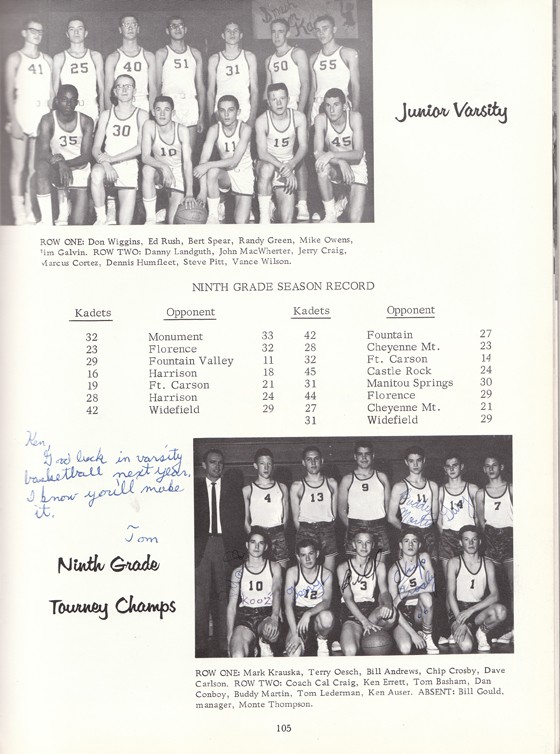 41 25 40 51 31 50 55
35 30 10 11 15 45
Junior Varsity
ROW ONE: Don Wiggins, Ed Rush, Bert Spear, Randy Green, Mike Owens,
Jim Galvin. ROW TWO: Danny Landguth, John MacWherter, Jerry Craig,
Marcus Cortez, Dennis Humfleet, Steve Pitt, Vance Wilson.
NINTH GRADE SEASON RECORD
Kadets Opponent Kadets Opponent
32 Monument 33 42 Fountain 27
23 Florence 32 28 Cheyenne Mt. 23
29 Fountain Valley 11 32 Ft. Carson 14
16 Harrison 18 45 Castle Rock 24
19 Ft. Carson 21 31 Manitou Springs 30
28 Harrison 24 44 Florence 29
42 Widefield 29 27 Cheyenne Mt. 21
31 Widefield 29
Ken,
Good luck in varsity
basketball next year,
I know you'll make
it.
Tom
Ninth Grade
Tourney Champs
4 13 9 11 14 7
Buddy
10 12 3 5 1
ROW ONE: Mark Krauska, Terry Oesch, Bill Andrews, Chip Crosby, Dave
Carlson. ROW TWO: Coach Cal Craig, Ken Errett, Tom Basham, Dan
Conboy, Buddy Martin, Tom Lederman, Ken Auser. ABSENT: Bill Gould,
manager, Monte Thompson.
105